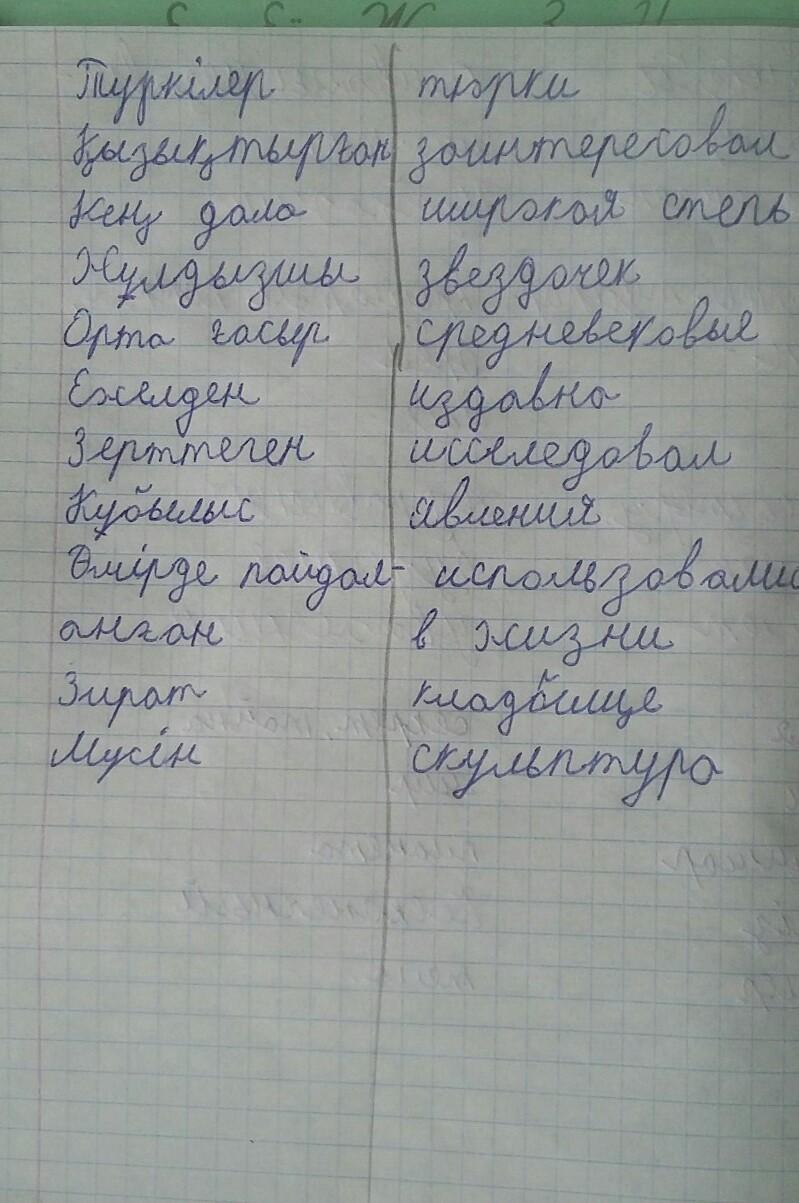 Түркілер тюрки
Қызықтырған заинтересовал
Кең дала широкая степь
Жұлдызшы звездочек
Орта ғасыр средневековые
Ежелден издавна
Зерттеген исследовал
Құбылыс явления
Өмірде пайдал- использовали
анған в жизни
Зират кладбище
Мүсін скульптура